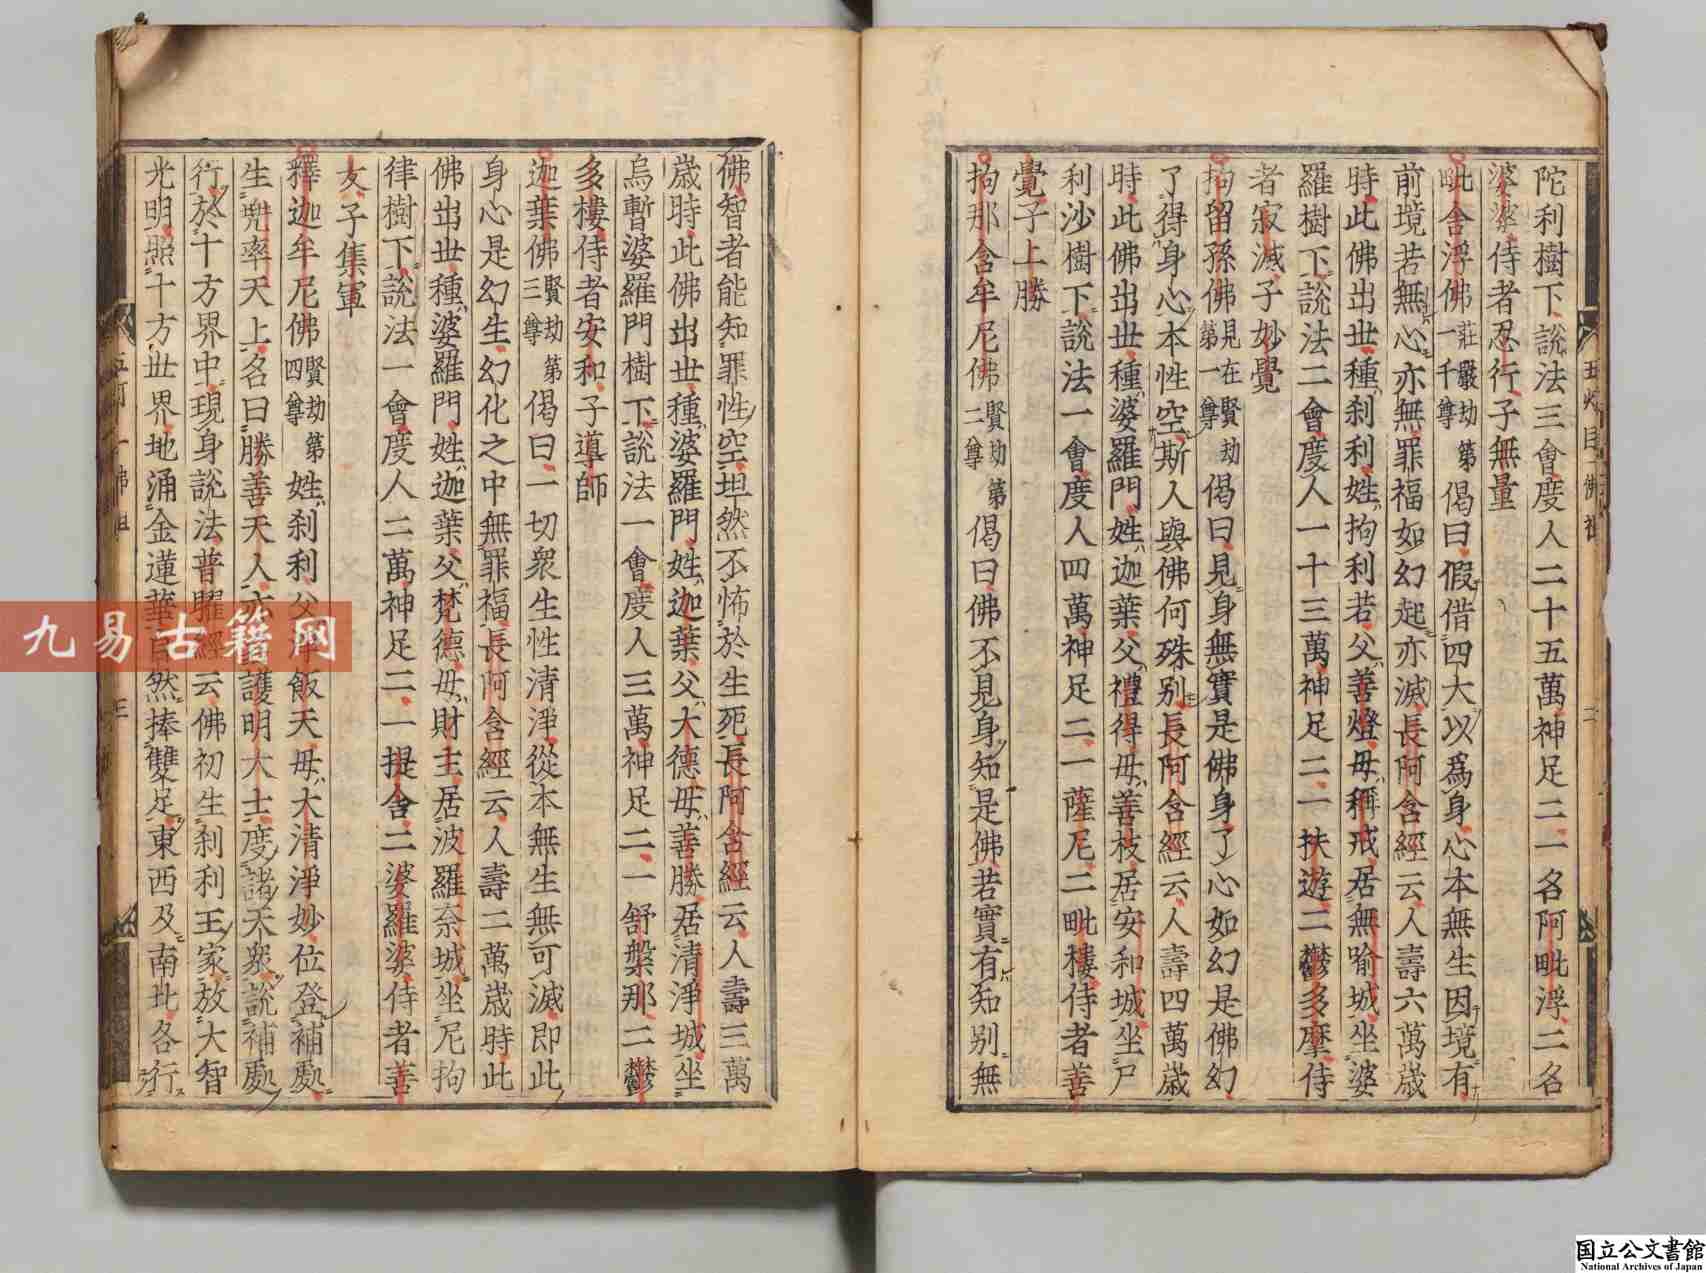 陀利樹下說法三會度人二十五萬神足二一名阿毗浮二名
婆婆侍者忍行子無量
毗舍浮佛莊嚴劫第一千尊偈曰假借四大以爲身心本無生因境有
前境若無心亦無罪福如幻起亦滅長阿含經云人壽六萬歲
時此佛出世種刹利姓拘利若父善燈母稱戒居無喻城坐婆
羅樹下說法二會度人一十三萬神足二一扶遊二鬱多摩侍
者寂滅子妙覺
拘留孫佛見在賢劫第一尊偈曰見身無實是佛身了心如幻是佛幻
了得身心本性空斯人與佛何殊別長阿含經云人壽四萬歲
時此佛出世種婆羅門姓迦葉父禮得母善枝居安和城坐尸
利沙樹下說法一會度人四萬神足二一薩尼二毗樓侍者善
覺子上勝
拘那含牟尼佛賢劫第二尊偈曰佛不見身知是佛若實有知別無
五燈目一佛祖 二
佛智者能知罪性空坦然不怖於生死長阿含經云人壽三萬
歲時此佛出世種婆羅門姓迦葉父大德母善勝居清淨城坐
烏暫婆羅門樹下說法一會度人三萬神足二一舒槃那二鬱
多樓侍者安和子導師
迦葉佛賢劫第三尊偈曰一切衆生性清淨從本無生無可滅即此
身心是幻生幻化之中無罪福長阿含經云人壽二萬歲時此
佛出世種婆羅門姓迦葉父梵德母財主居波羅奈城坐尼拘
律樹下說法一會度人二萬神足二一提舍二婆羅婆侍者善
友子集軍
釋迦牟尼佛賢劫第四尊姓刹利父淨飯天母大清淨妙位登補處
生兜率天上名曰勝善天人亦護明大士度諸天衆說補處
行於十方界中現身說法普曜經云佛初生刹利王家放大智
光明照十方世界地涌金蓮華自然捧雙足東西及南北各行
九易古籍网
国立公文書館
National Archives of Japan